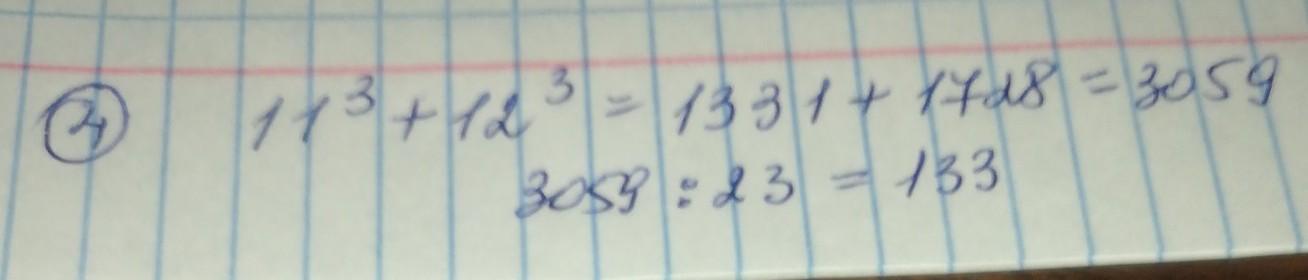 ④ 11³ + 12³ = 1331 + 1728 = 3059
3059 : 23 = 133